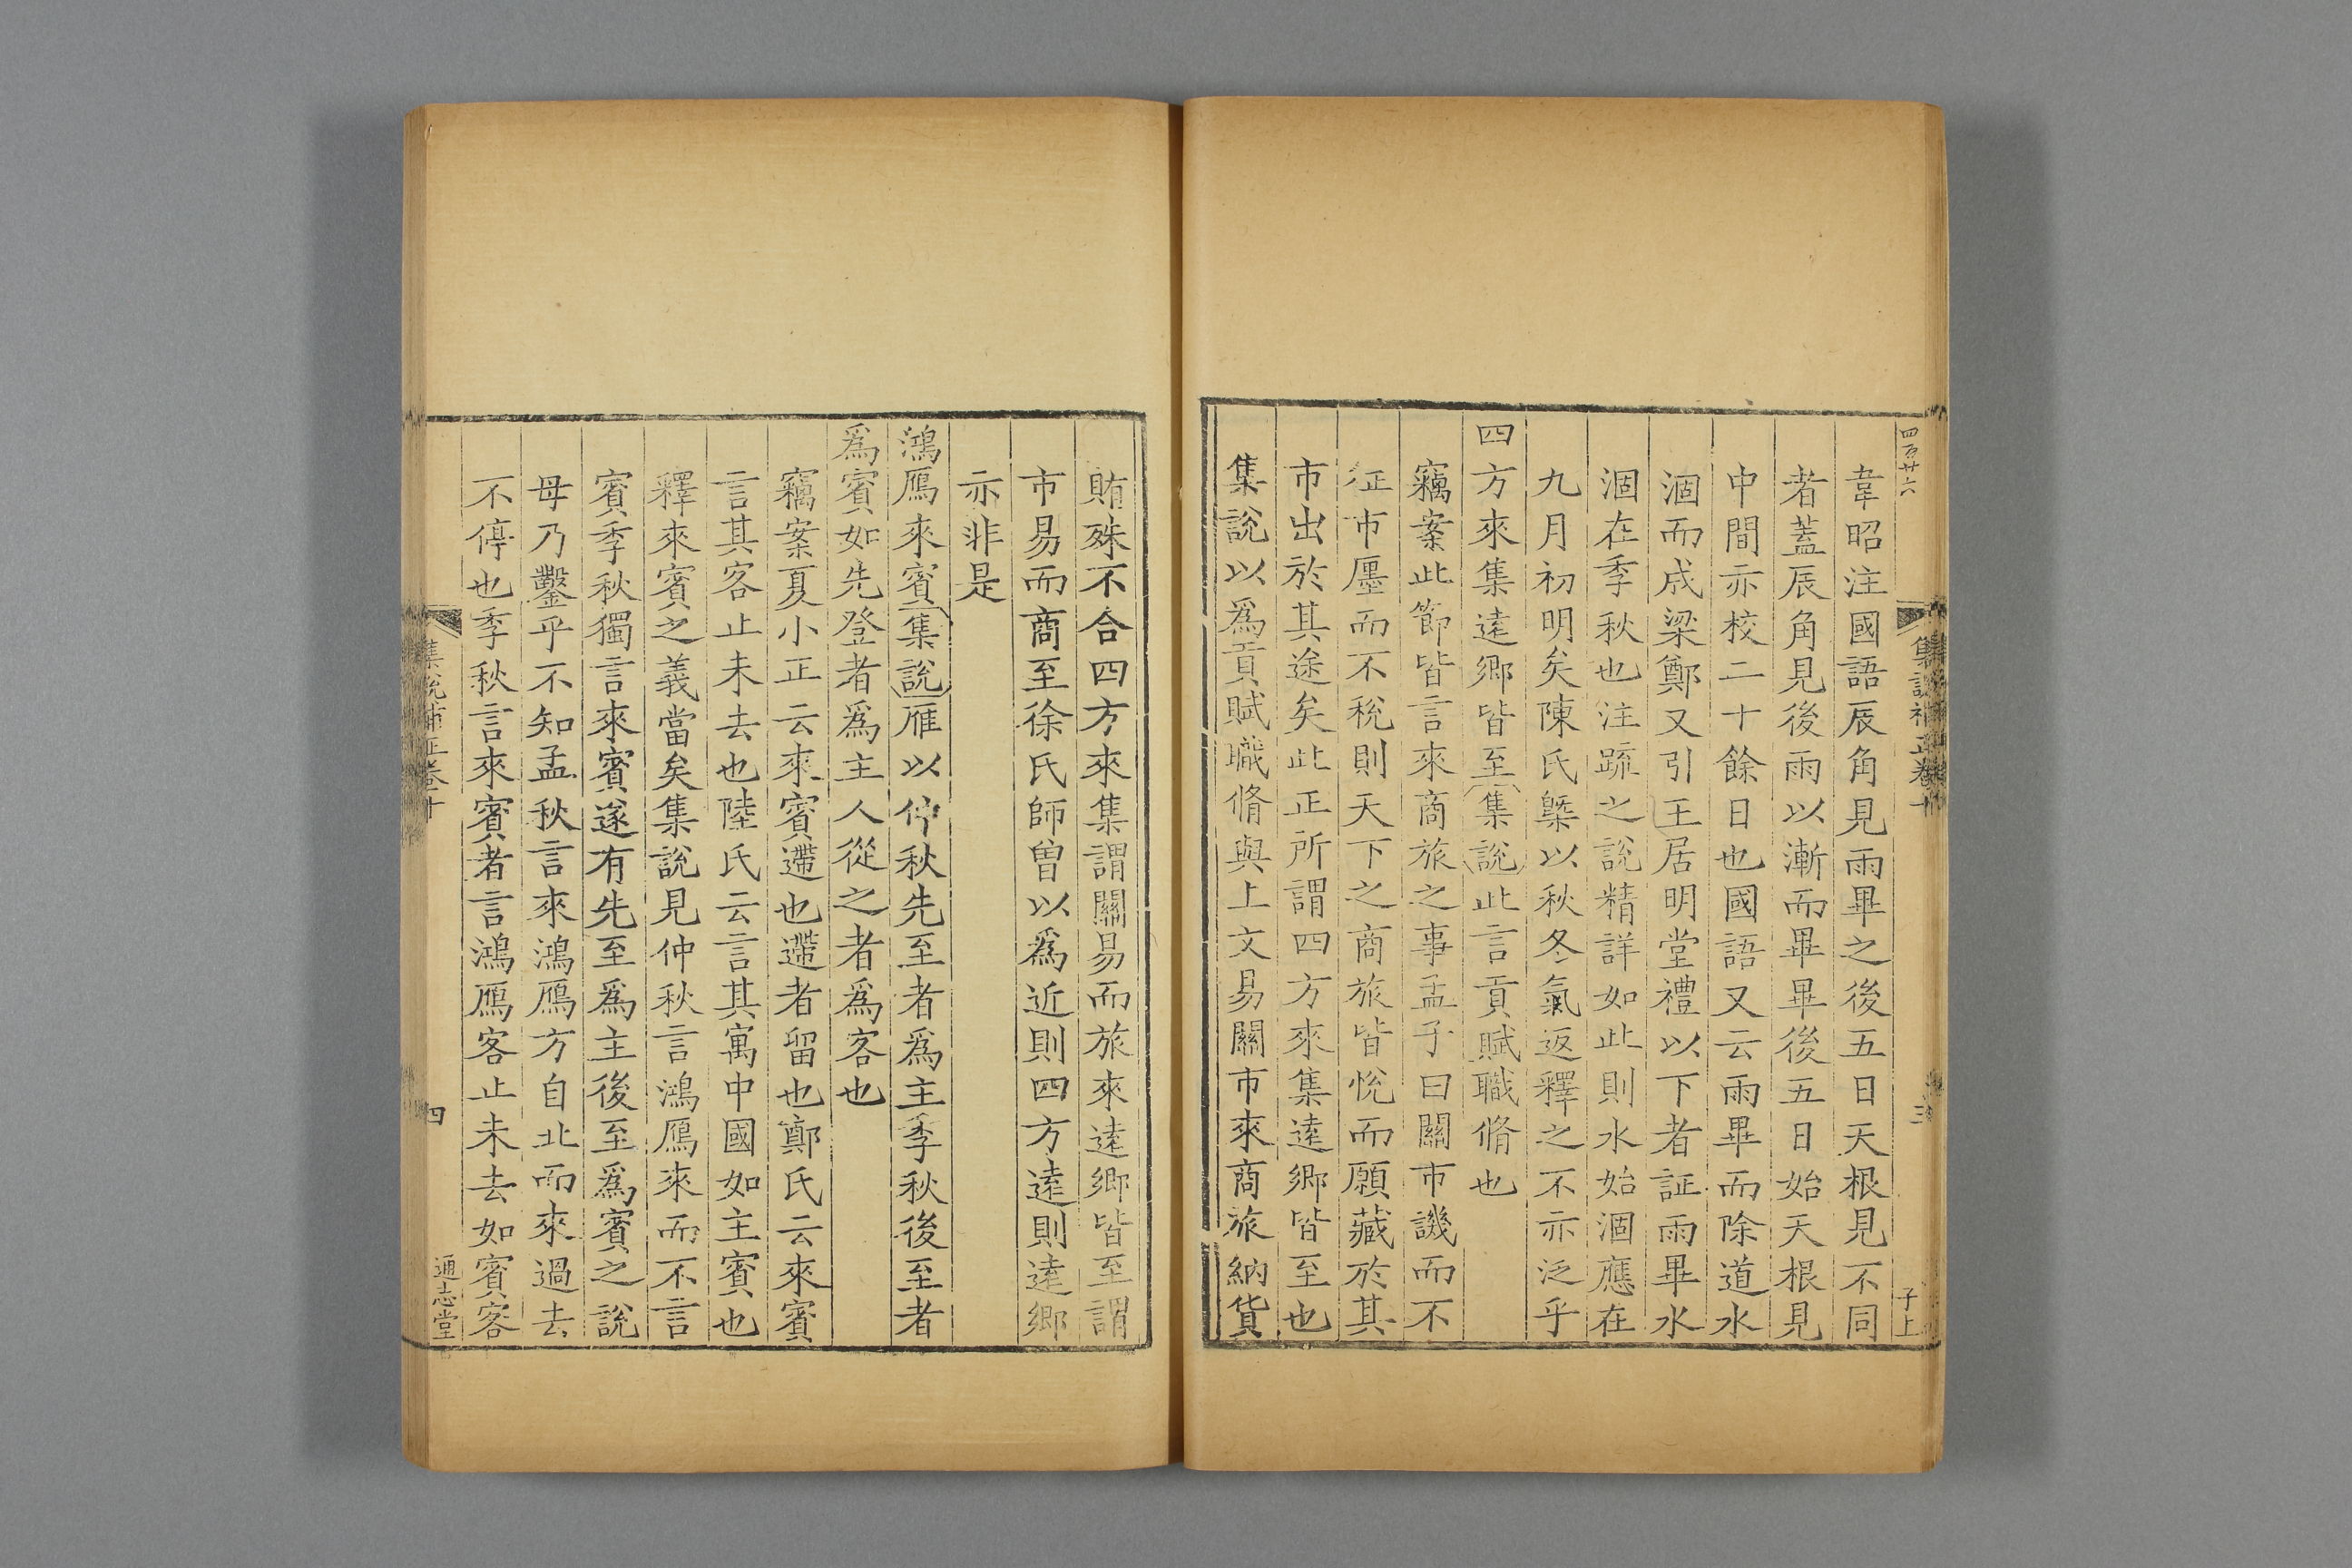 四百廿六
子上
韋昭注國語辰角見雨畢之後五日天根見不同
者蓋辰角見後雨以漸而畢畢後五日始天根見
中間亦校二十餘日也國語又云雨畢而除道水
涸而成梁鄭又引王居明堂禮以下者証雨畢水
涸在季秋也注疏之說精詳如此則水始涸應在
九月初明矣陳氏槩以秋冬氣返釋之不亦泛乎
四方來集遠鄉皆至集說此言貢賦職脩也
竊案此節皆言來商旅之事孟子曰關市譏而不
征市廛而不稅則天下之商旅皆悅而願藏於其
市出於其途矣此正所謂四方來集遠鄉皆至也
集說以為貢賦職脩與上文易關市來商旅納貨
賄殊不合四方來集謂關易而旅來遠鄉皆至謂
市易而商至徐氏師曾以爲近則四方遠則遠鄉
亦非是
鴻鴈來賓集說雁以仲秋先至者爲主季秋後至者
爲賓如先登者爲主人從之者爲客也
竊案夏小正云來賓遰也遰者留也鄭氏云來賓
言其客止未去也陸氏云言其寓中國如主賓也
釋來賓之義當矣集說見仲秋言鴻鴈來而不言
賓季秋獨言來賓遂有先至爲主後至爲賓之說
毋乃鑿乎不知孟秋言來鴻鴈方自北而來過去
不停也季秋言來賓者言鴻鴈客止未去如賓客
集說補正卷十
四
通志堂